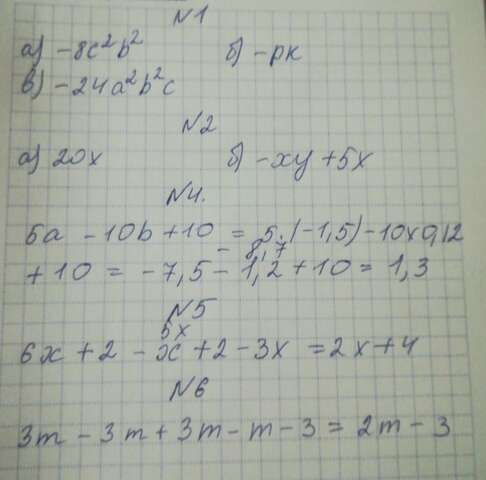 N1
а) -8c²b² б) -pk
в) -24a²b²c
N2
а) 20x б) -xy + 5x
N4.
5a - 10b + 10 = 5·(-1,5) - 10×0,12
- 8,7
+ 10 = -7,5 - 1,2 + 10 = 1,3
N5
5x
6x + 2 - x + 2 - 3x = 2x + 4
N6
3m - 3m + 3m - m - 3 = 2m - 3